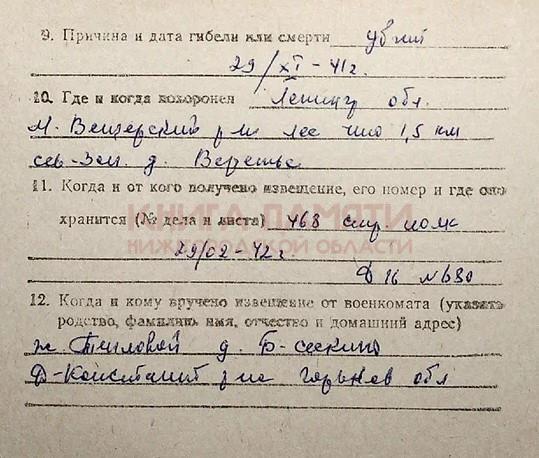 9. Причина и дата гибели или смерти убит
29/XI-41г.
10. Где и когда похоронен Ленингр обл.
М. Вишерский р-н лес что 1,5 км
сев-зап. д. Веретье
11. Когда и от кого получено извещение, его номер и где оно
хранится (№ дела и листа) 468 стр. полк
29/02-42г
Д 16 №
12. Когда и кому вручено извещение от военкомата (указать
родство, фамилию имя, отчество и домашний адрес)
ж д.
Д-Констант р-не Горьков обл
КНИГА ПАМЯТИ
НИЖЕГОРОДСКОЙ ОБЛАСТИ